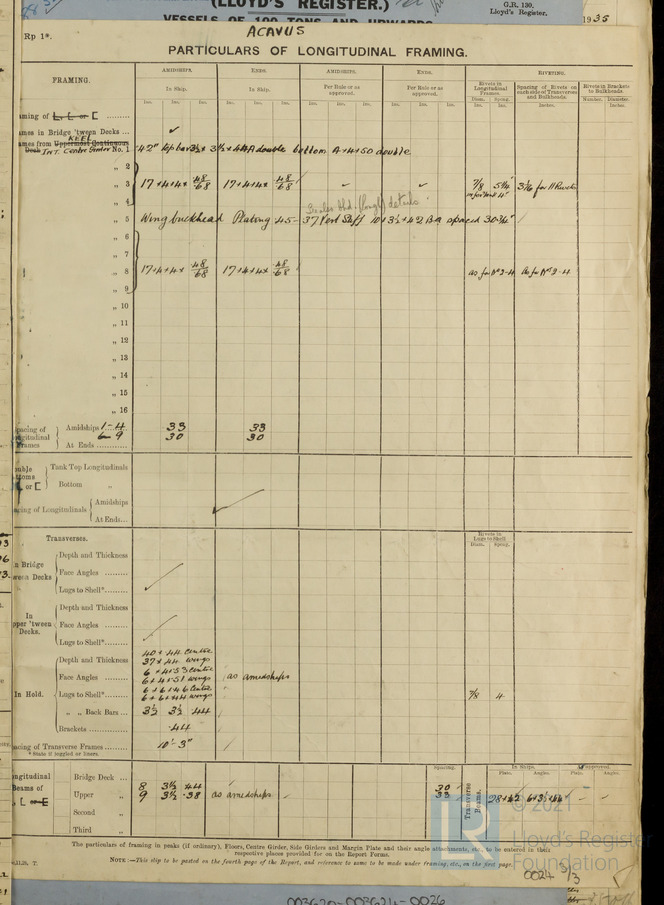 (LLOYD'S REGISTER.)
VESSELS OF 100 TONS AND UPWARDS
G.R. 130.
Lloyd's Register.
1935
Rp 1*.
ACAVUS
PARTICULARS OF LONGITUDINAL FRAMING.
FRAMING. AMIDSHIPS. ENDS. AMIDSHIPS. ENDS. RIVETING.
In Ship. In Ship. Per Rule or as approved. Per Rule or as approved. Rivets in Longitudinal Frames. Spacing of Rivets on each side of Transverses and Bulkheads. Rivets in Brackets to Bulkheads.
Ins. Ins. Ins. Ins. Ins. Ins. Ins. Ins. Ins. Ins. Ins. Ins. Diam. Ins. Spcng. Ins. Inches. Number. Diameter. Inches.
aming of L, L or [
ames in Bridge 'tween Decks ... ✓
KEEL
ames from Uppermost Continuous
Deck INT. Centre Girder No. 1 42" double bottom 4+4+50 double
„ 2
„ 3 17+4+4+ 48/68 17+4+4+ 48/68 ✓ ✓ 7/8 5 1/4"
„ 4 details
„ 5 Wing buckhead Plating 45-37 Vert Stiff 10+3½+42 BA spaced 30¾"
„ 6
„ 7
„ 8 17+4+4+ 48/68 17+4+4+ 48/68 as for Nos 2-4 As for Nos 2-4
„ 9
„ 10
„ 11
„ 12
„ 13
„ 14
„ 15
„ 16
pacing of ngitudinal Frames
Amidships 1-4 33 33
6-9 30 30
At Ends
ouble ttoms L or [
Tank Top Longitudinals
Bottom „
cing of Longitudinals
Amidships ✓
At Ends...
Transverses. Rivets in Lugs to Shell
Diam. Spcng.
n Bridge ween Decks
Depth and Thickness
Face Angles ......... ✓
Lugs to Shell*.......
In pper 'tween Decks.
Depth and Thickness
Face Angles ......... ✓
Lugs to Shell*.......
In Hold.
Depth and Thickness 40+44 centre
37+44 wings
Face Angles ......... 6+4+53 centre
6+4+51 wings as amidships
Lugs to Shell*....... 6+6+46 centre
6+6+44 wings 7/8 4
„ „ Back Bars ... 3½ 3½ 44
Brackets .......... .44
pacing of Transverse Frames ....... 10'-3"
* State if joggled or liners.
ongitudinal Beams of L or [
Spacing. Transverse Beams. In Ships. Approved.
Plate. Angles. Plate. Angles.
Bridge Deck ...
Upper „ 8 3½ 44 30
9 3½ .38 as amidships 33 28+42 6+3½+44
Second „
Third „
The particulars of framing in peaks (if ordinary), Floors, Centre Girder, Side Girders and Margin Plate and their angle attachments, etc., to be entered in their
respective places provided for on the Report Forms.
NOTE:—This slip to be posted on the fourth page of the Report, and reference to same to be made under framing, etc., on the first page.
© 2021
Lloyd's Register
Foundation
LR
0024 3/3
003620-003624-0026